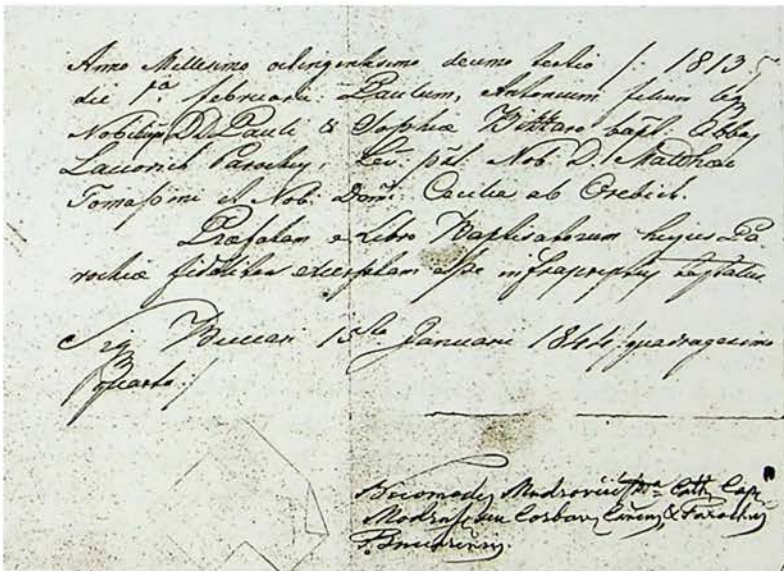 Anno Millesimo octingentesimo decimo tertio /: 1813
die 1ª februarii: Paulum, Antonium filium leg
Nobilium DD Pauli & Sophiæ Bittaro bapt: Abbas
Lacovich Parochus, Lev: pñt. Nob. D. Matthæo
Tomassini et Nob: Domª Cæcilia ab Orebich.
Præfatam e Libro Baptisatorum hujus Pa
rochiæ fideliter excerptam esse infrascriptus testatur.
Sig Buccari 15ta Januarii 1844 / quadragesimo
quarto :/
Modrussien Corbav